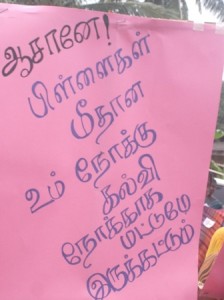 ஆசானே!
பிள்ளைகள்
மீதான
உம் நோக்கு
கல்வி
நோக்காக
மட்டுமே
இருக்கட்டும்